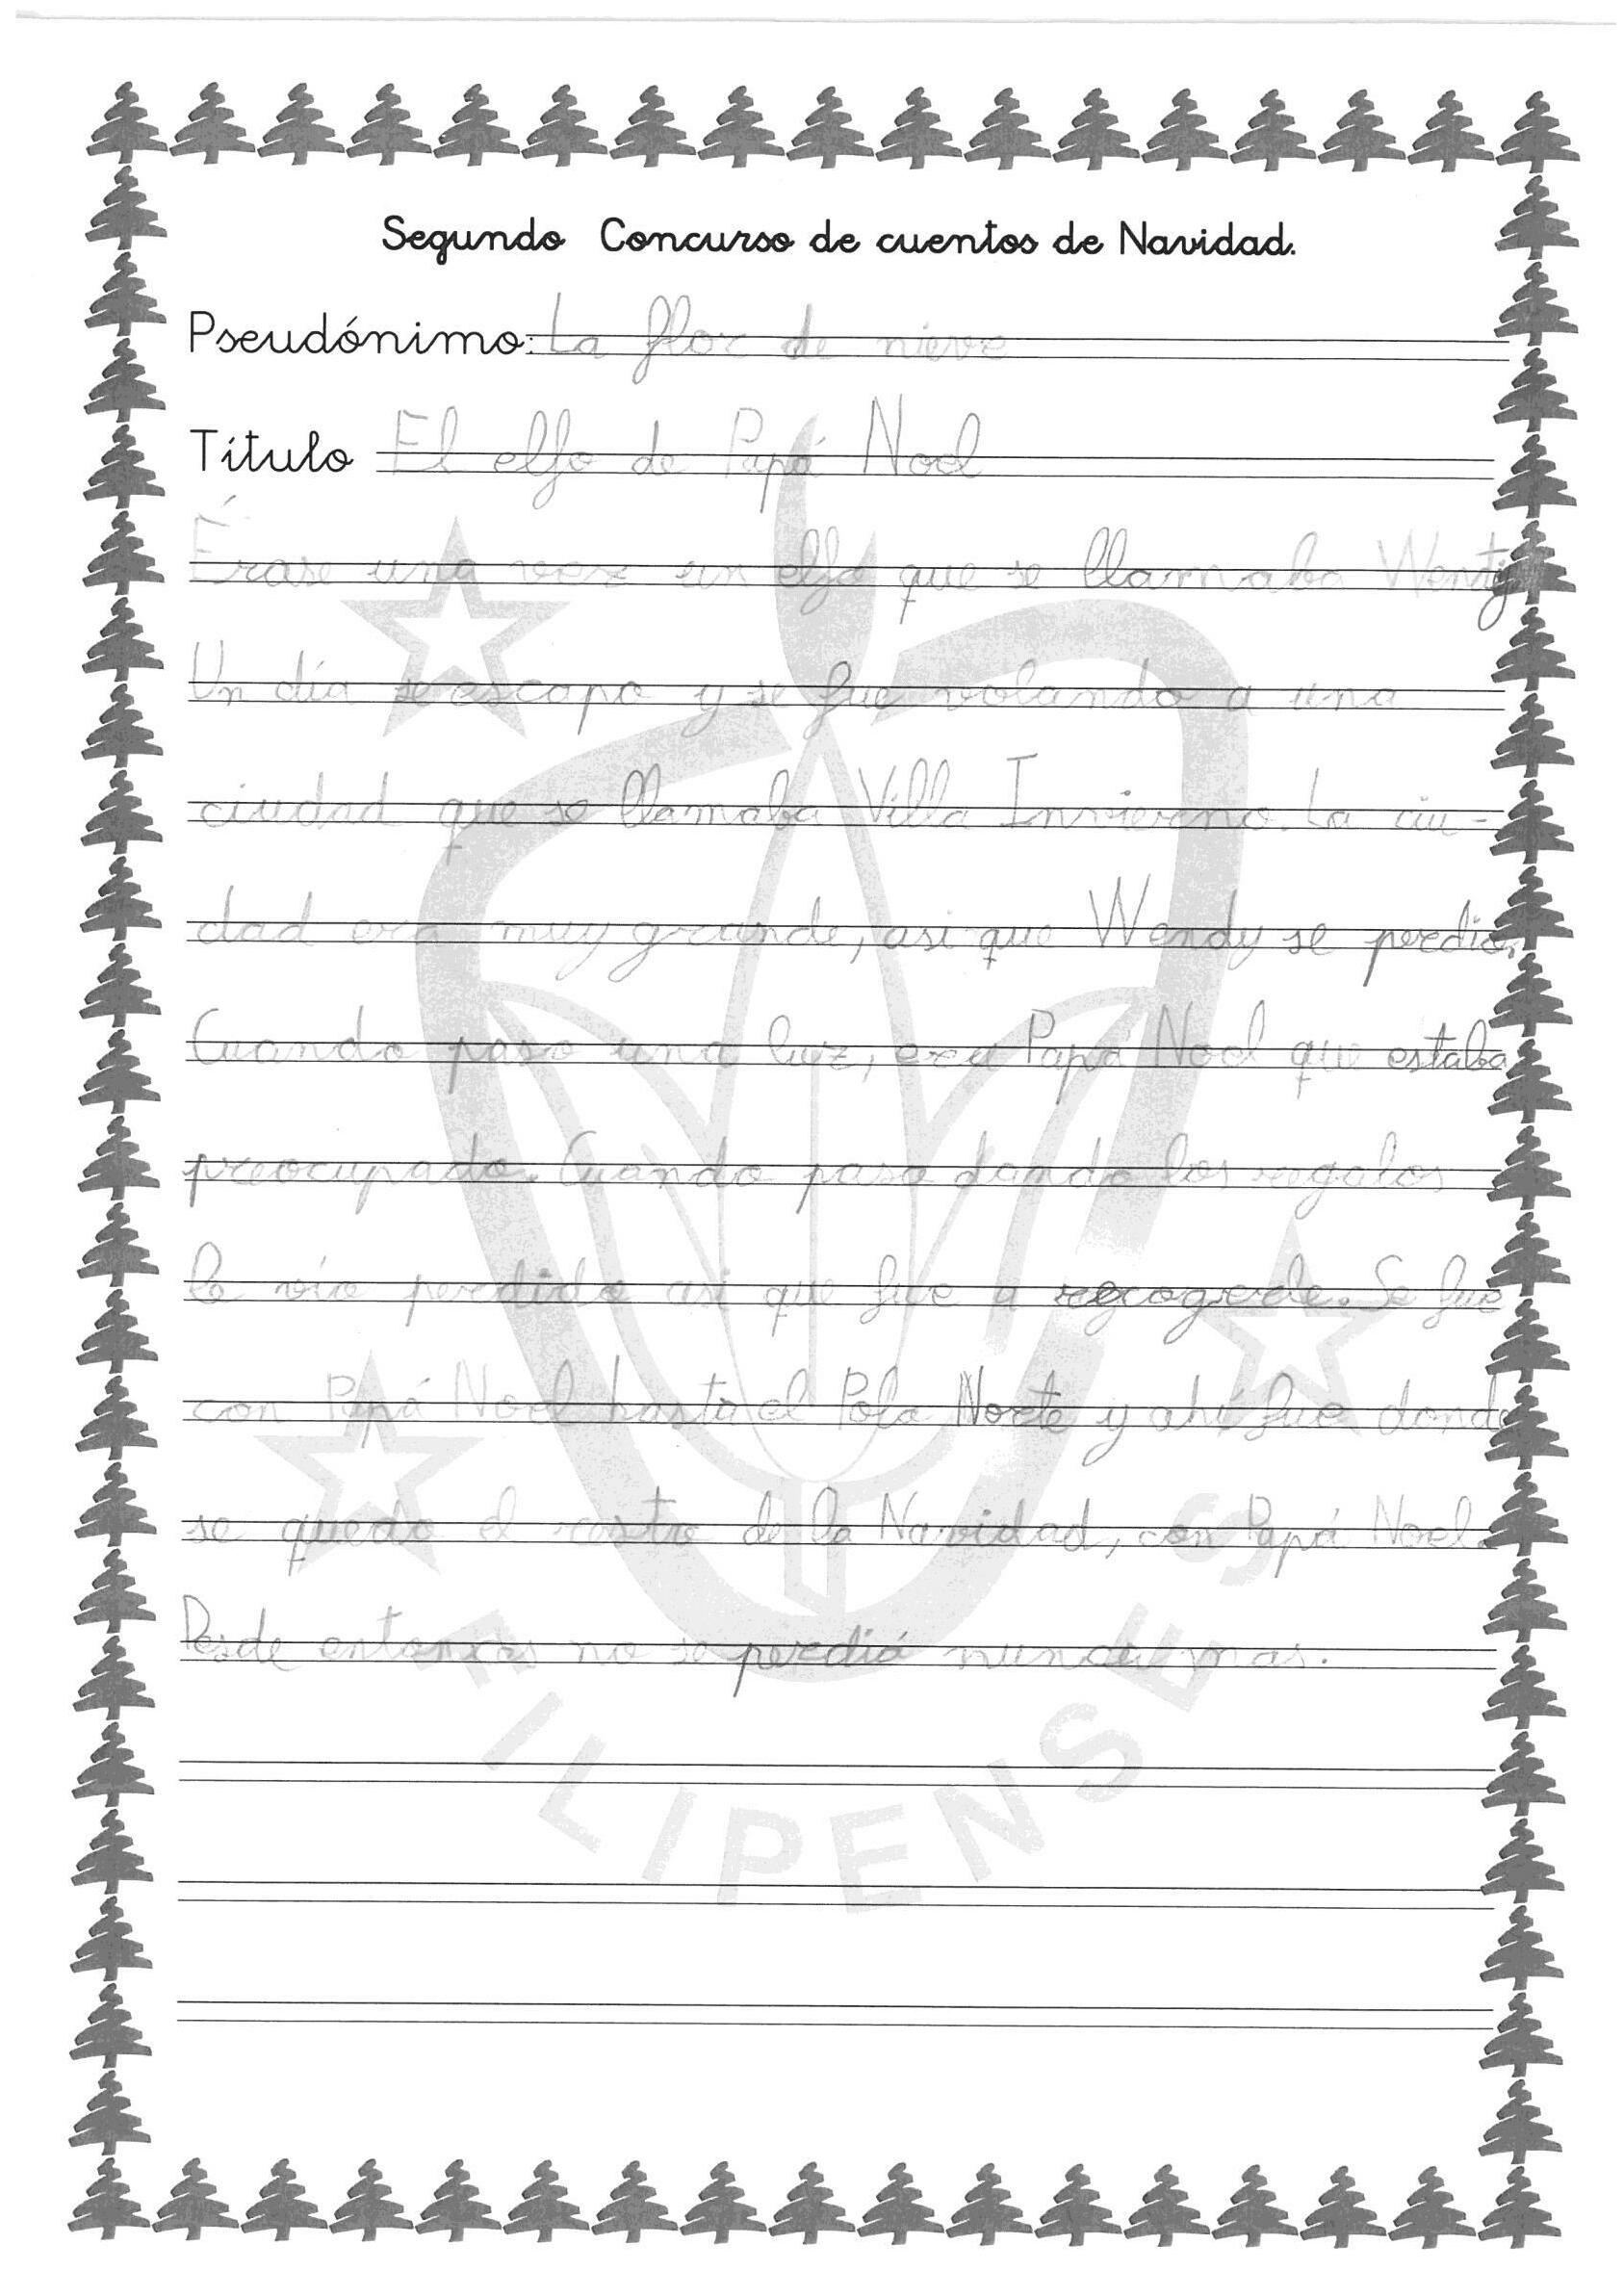 Segundo Concurso de cuentos de Navidad.
Pseudónimo: La flor de nieve
Título El elfo de Papá Noel
Érase una vez un elfo que se llamaba Wendy
Un día se escapo y se fue volando a una
ciudad que se llamaba Villa Invierno. La ciu-
dad era muy grande, asi que Wendy se perdio.
Cuando paso una luz, era Papá Noel que estaba
preocupado. Cuando paso dando los regalos
le vio perdido asi que fue a recogerle. Se fue
con Papá Noel hasta el Polo Norte y ahí fue donde
se quedo el rostro de la Navidad, con Papá Noel.
Desde entonces no se perdió nunca mas.
FILIPENSES